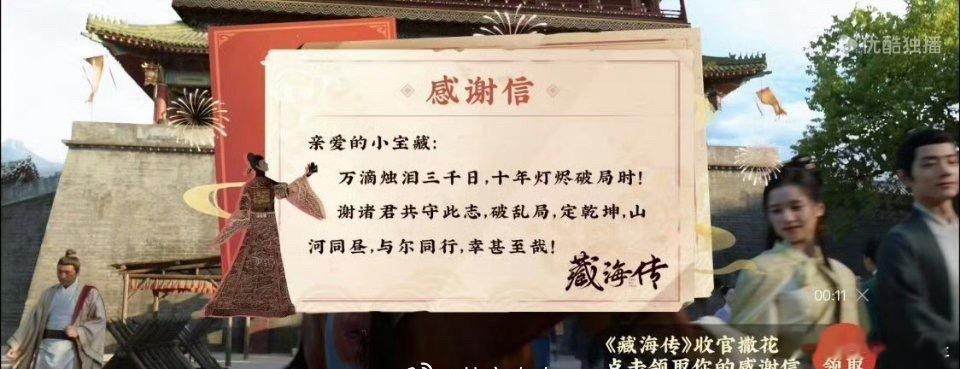 优酷独播
感谢信
亲爱的小宝藏:
万滴烛泪三千日,十年灯烬破局时!
谢诸君共守此志,破乱局,定乾坤,山
河同昼,与尔同行,幸甚至哉!
藏海传
00:11
《藏海传》收官撒花
点击领取你的感谢信
领取